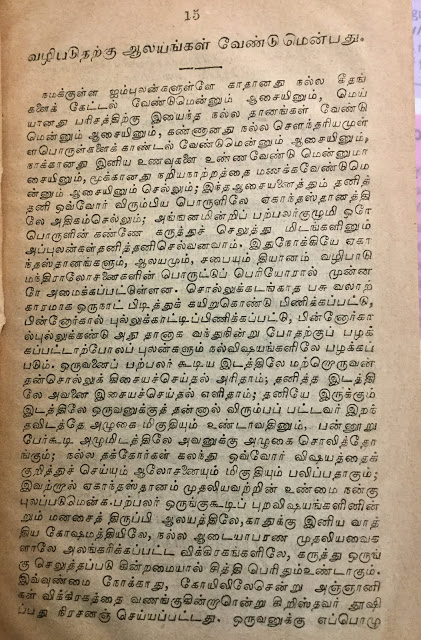 15
வழிபடுதற்கு ஆலயங்கள் வேண்டுமென்பது.
நமக்குள்ள ஐம்புலன்களுள்ளே காதானது நல்ல கீதங்
களைக் கேட்டல் வேண்டுமென்னும் ஆசையினும், மெய்
யானது பரிசத்திற்கு இயைந்த நல்ல தானங்கள் வேண்டு
மென்னும் ஆசையினும், கண்ணானது நல்ல சௌந்தரியமுள்
ளபொருள்களைக் காண்டல் வேண்டுமென்னும் ஆசையினும்,
நாக்கானது இனிய உணவுகளை உண்ணவேண்டு மென்னுமா
சையினும், மூக்கானது நறியநாற்றத்தை மணக்கவேண்டுமெ
ன்னும் ஆசையினும் செல்லும்; இந்தஆசையனைத்தும் தனித்
தனி ஒவ்வோர் விரும்பிய பொருளிலே ஏகாந்தஸ்தானத்தி
லே அதிகம்செல்லும்; அங்ஙனமின்றிப் பற்பலர்குழுமி ஒரோ
பொருளின் கண்ணே கருத்துச் செலுத்து மிடங்களினும்
அப்புலன்கள்தனித்தனிசெல்வனவாம். இதுநோக்கியே ஏகா
ந்தஸ்தானங்களும், ஆலயமும், சபையும் தியானம் வழிபாடு
மந்திராலோசனைகளின் பொருட்டுப் பெரியோரால் முன்ன
ரே அமைக்கப்பட்டுள்ளன. சொல்லுக்கடங்காத பசு வலாற்
காரமாக ஒருநாட் பிடித்துக் கயிறுகொண்டு பிணிக்கப்பட்டு,
பின்னோர்கால் புல்லுக்காட்டிப்பிணிக்கப்பட்டு, பின்னோர்கா
ல்புல்லுக்கண்டு அது தானாக வந்துநின்று போதற்குப் பழக்
கப்பட்டாற்போலப் புலன்களும் நல்விஷயங்களிலே பழகப்
படும். ஒருவனைப் பற்பலர் கூடிய இடத்திலே மற்றொருவன்
தன்சொல்லுக் கிசையச்செய்தல் அரிதாம்; தனித்த இடத்தி
லே அவனை இசையச்செய்தல் எளிதாம்; தனியே இருக்கும்
இடத்திலே ஒருவனுக்குத் தன்னால் விரும்பப் பட்டவர் இறந்
தவிடத்தே அழுகை மிகுதியும் உண்டாவதினும், பன்னூறு
பேர்கூடி அழுமிடத்திலே அவனுக்கு அழுகை சொலித்தோ
ங்கும்; நல்ல தக்கோர்கள் கலந்து ஒவ்வோர் விஷயத்தைக்
குறித்துச் செய்யும் ஆலோசனையும் மிகுதியும் பலிப்பதாகும்;
இவற்றால் ஏகாந்தஸ்தானம் முதலியவற்றின் உண்மை நன்கு
புலப்படுமென்க. பற்பலர் ஒருங்குகூடிப் புறவிஷயங்களினின்
றும் மனசைத் திருப்பி ஆலயத்திலே, காதுக்கு இனிய வாத்
திய கோஷமத்தியிலே, நல்ல ஆடையாபரண முதலியவைக
ளாலே அலங்கரிக்கப்பட்ட விக்கிரகங்களிலே, கருத்து ஒருங்
கு செலுத்தப்படு கின்றமையால் சித்தி பெரிதும்உண்டாகும்.
இவ்வுண்மை நோக்காது, கோயிலிலேசென்று அஞ்ஞானி
கள் விக்கிரகத்தை வணங்குகின்றாரென்று கிறிஸ்தவர் தூஷி
ப்பது கிரசனஞ் செய்யப்பட்டது. ஒருவனுக்கு எப்பொழு